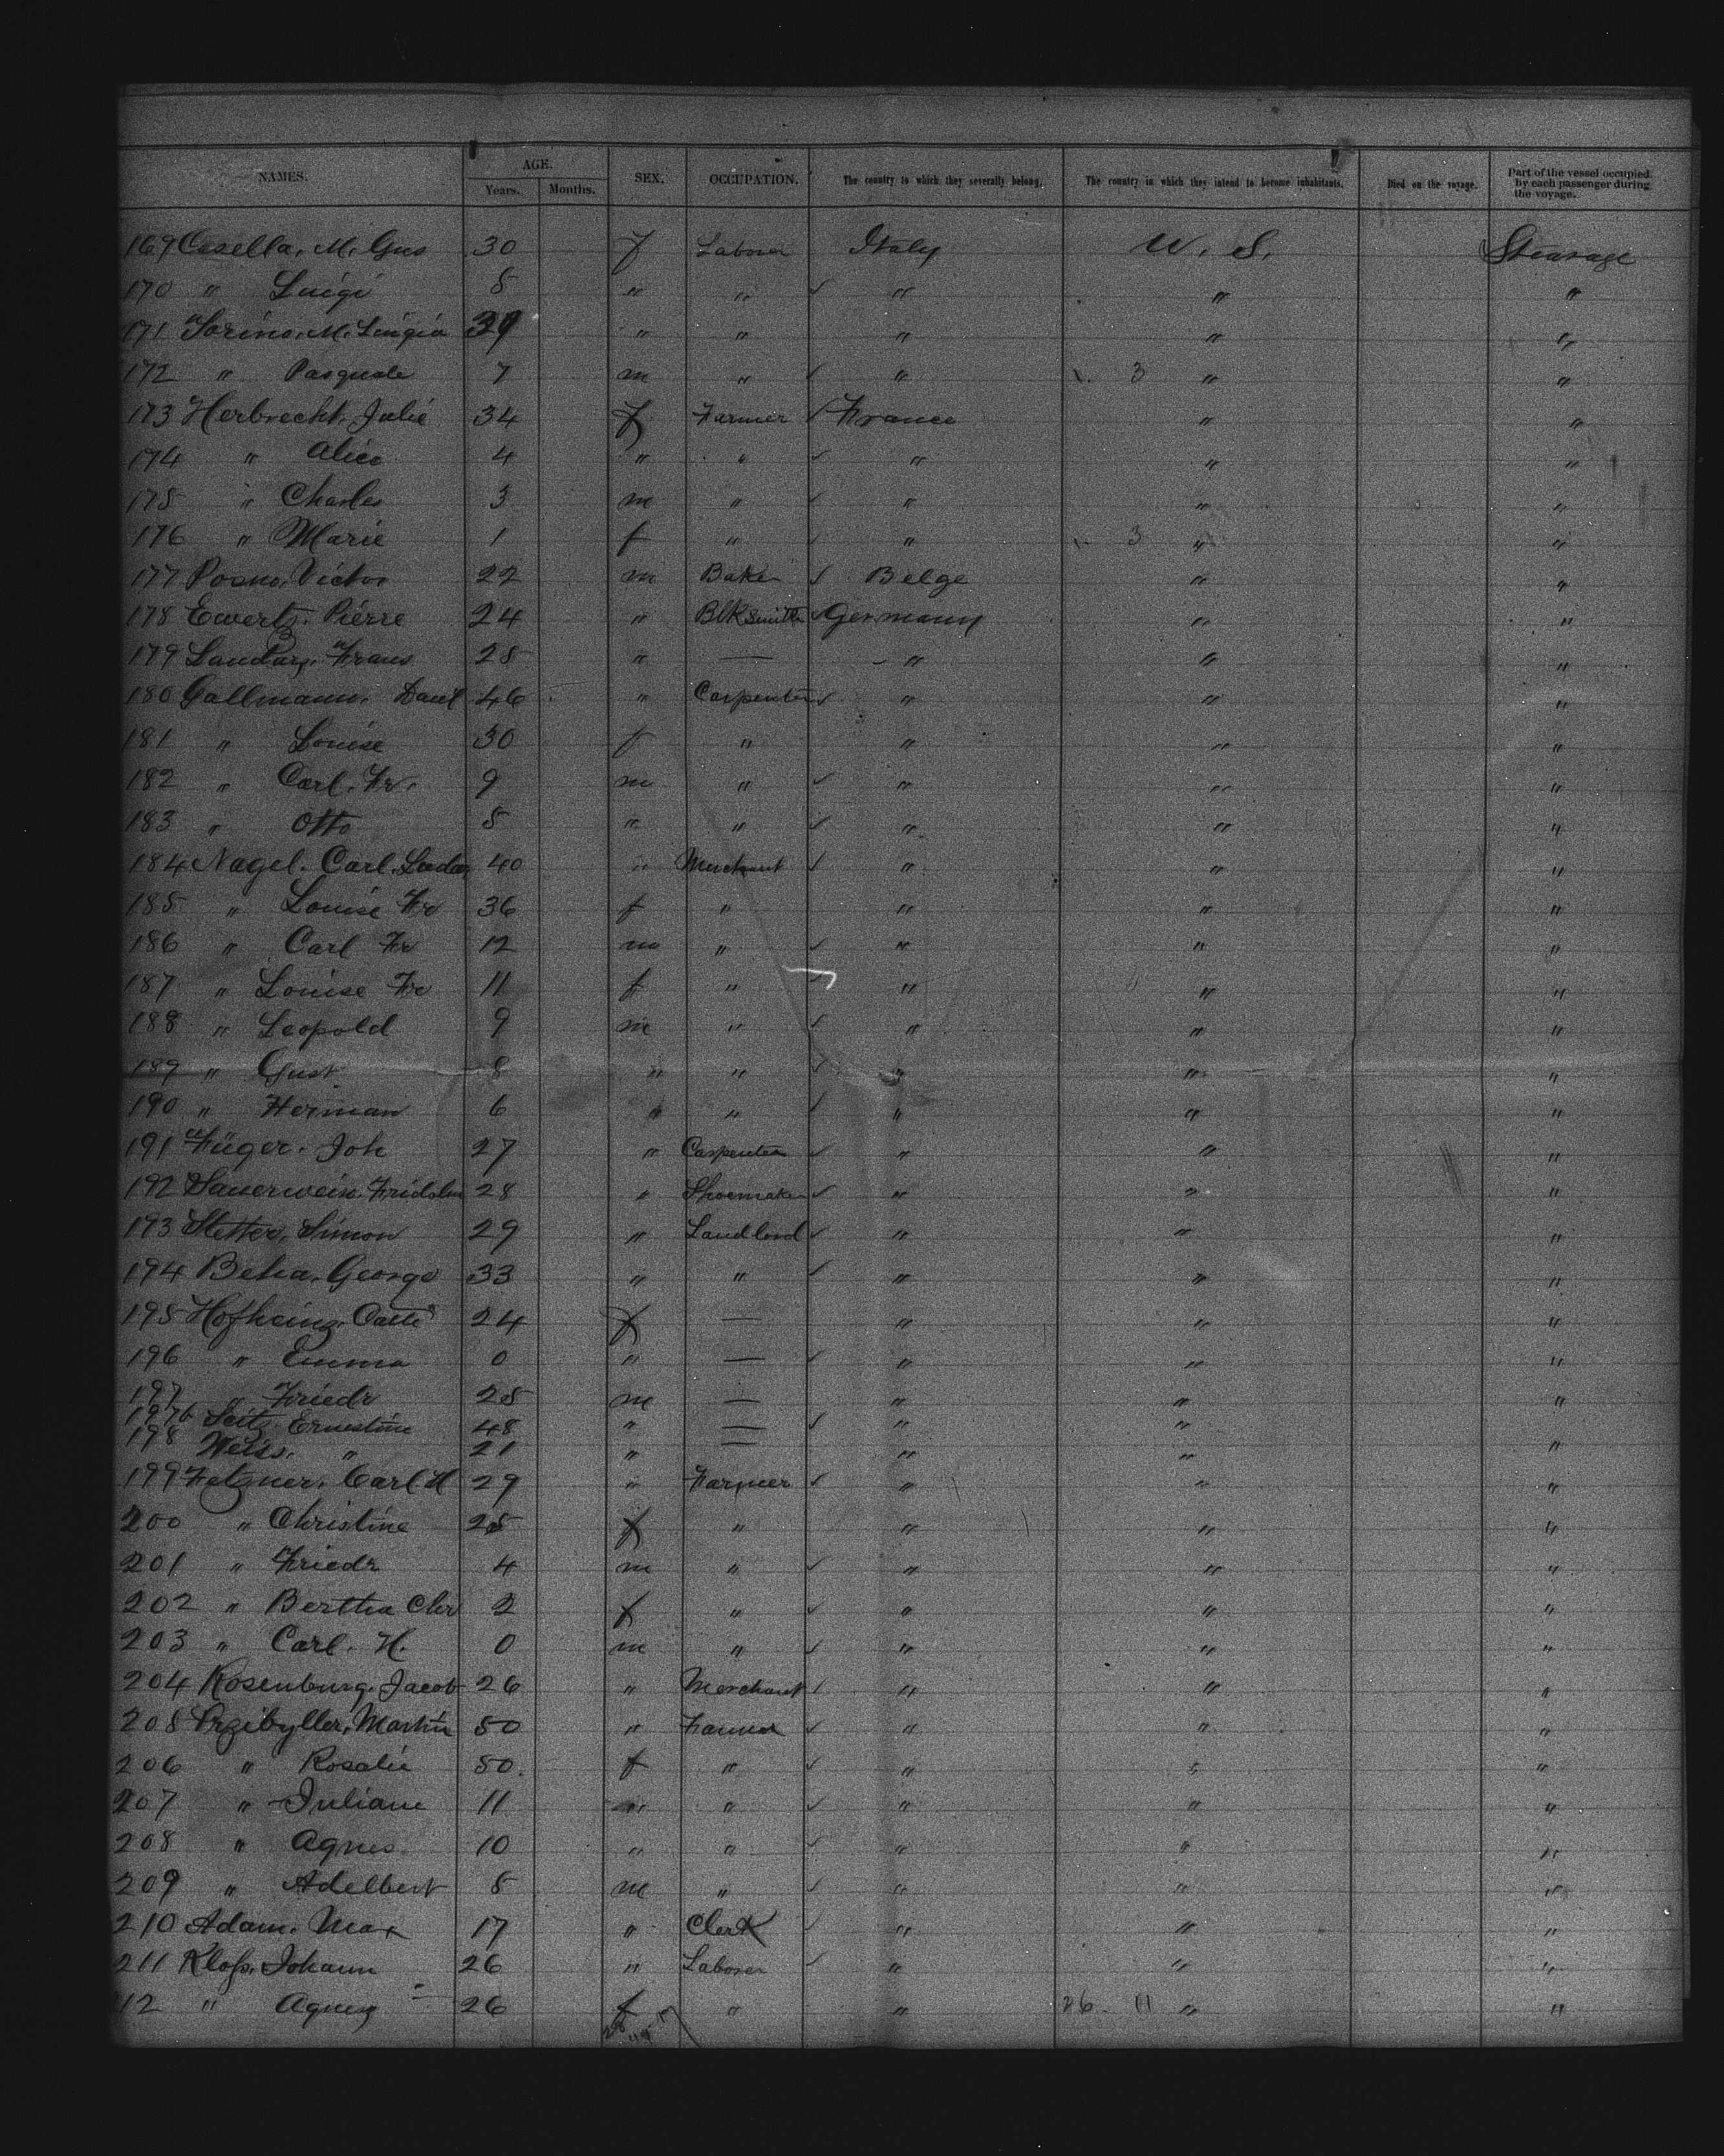 NAMES. AGE. Years. Months. SEX. OCCUPATION. The country to which they severally belong. The country in which they intend to become inhabitants. Died on the voyage. Part of the vessel occupied by each passenger during the voyage.
169 Casella, M. Gus 30 f Laborer Italy U. S. Steerage
170 " Luigi 8 " " " " "
171 Torino, M. Luigia 39 " " " " "
172 " Pasquale 7 m " " 3 " "
173 Herbrecht, Julie 34 f Farmer France " "
174 " Alice 4 " " " " "
175 " Charles 3 m " " " "
176 " Marie 1 f " " 3 " "
177 Victor 22 m Baker Belge " "
178 Ewertz, Pierre 24 " Blksmith Germany " "
179 Frans 28 " — " " "
180 Gallmann, Danl 46 " Carpenter " " "
181 " Louise 30 f " " " "
182 " Carl. Fr. 9 m " " " "
183 " Otto 5 " " " " "
184 Nagel. Carl. 40 " Merchant " " "
185 " Louise Fr 36 f " " " "
186 " Carl Fr 12 m " " " "
187 " Louise Fr 11 f " " " "
188 " Leopold 9 m " " " "
189 " Gust 8 " " " " "
190 " Herman 6 " " " " "
191 Füger. Joh 27 " Carpenter " " "
192 Sauerwein. Fridolin 28 " Shoemaker " " "
193 Stetter, Simon 29 " Landlord " " "
194 Beha, George 33 " " " " "
195 Hofheinz, Cathe 24 f — " " "
196 " Emma 0 " — " " "
197 " Friedr 28 m — " " "
197b Seitz Ernestine 48 " — " "
198 Weiss. " 21 " — " " "
199 Fetzner, Carl H 29 " Farmer " " "
200 " Christine 25 f " " " "
201 " Friedr 4 m " " " "
202 " Bertha Chr 2 f " " " "
203 " Carl. H. 0 m " " " "
204 Rosenburg, Jacob 26 " Merchant " " "
205 Przibyller, Martin 50 " Farmer " " "
206 " Rosalie 50. f " " " "
207 " Juliane 11 " " " " "
208 " Agnes 10 " " " " "
209 " Adelbert 8 m " " " "
210 Adam. Max 17 " Clerk " " "
211 Kloss, Johann 26 " Laborer " " "
12 " Agnes 26 f " " 26. 11 " "